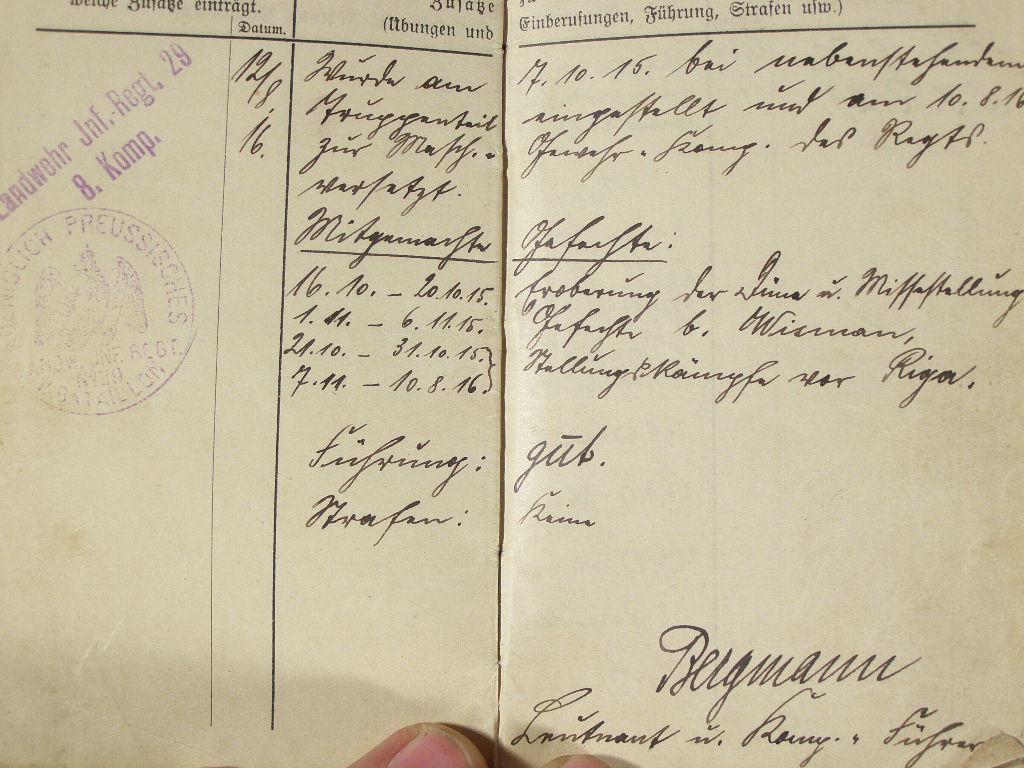 welche Zusätze einträgt.
Datum.
Zusätze
(Übungen und Einberufungen, Führung, Strafen usw.)
Landwehr Inf.-Regt. 29
8. Komp.
KÖNIGLICH PREUSSISCHES
LANDW. INF. REGT.
No 29
BATAILLON
12/8. 16.
Wurde am 7. 10. 15. bei nebenstehendem
Truppenteil eingestellt und am 10. 8. 16
zur Masch.- Gewehr-Komp. des Regts.
versetzt.
Mitgemachte Gefechte:
16. 10. – 20.10.15. Eroberung der Düna u. Missestellung
1. 11. – 6. 11.15. Gefechte b. Wisman,
21.10. – 31.10.15. Stellungskämpfe vor Riga.
7.11. – 10.8.16
Führung: gut.
Strafen: Keine
Bergmann
Leutnant u. Komp.-Führer